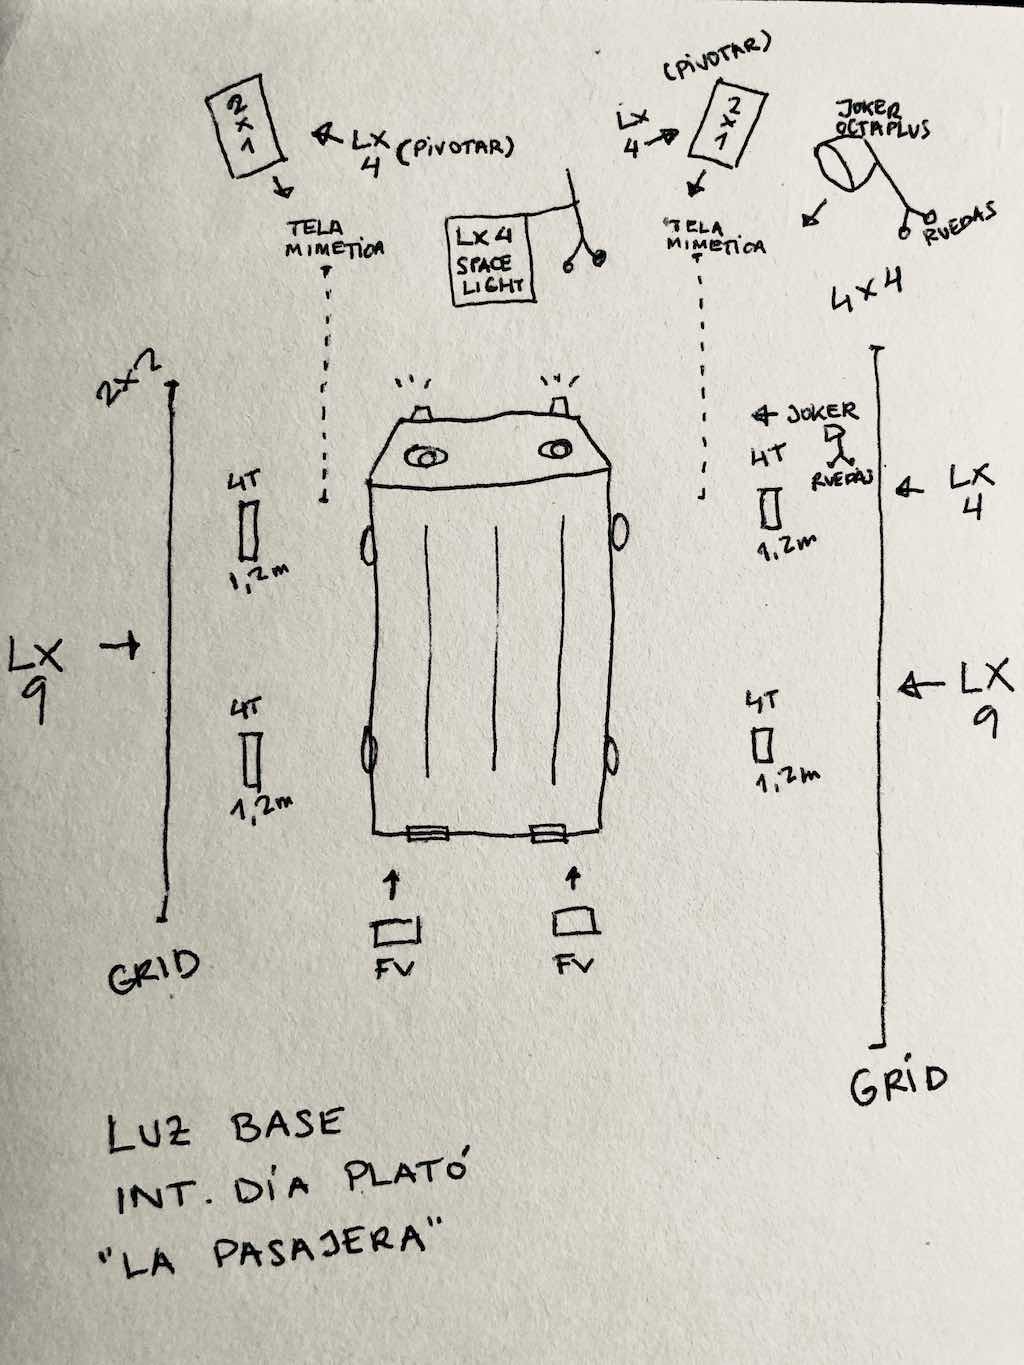 (PIVOTAR)
2x1
LX
4
(PIVOTAR)
LX
4
2x1
JOKER
OCTAPLUS
RUEDAS
TELA
MIMETICA
LX4
SPACE
LIGHT
TELA
MIMETICA
4x4
2x2
JOKER
RUEDAS
4T
1,2m
4T
1,2m
LX
4
LX
9
LX
9
4T
1,2m
4T
1,2m
GRID
FV
FV
GRID
LUZ BASE
INT. DÍA PLATÓ
"LA PASAJERA"